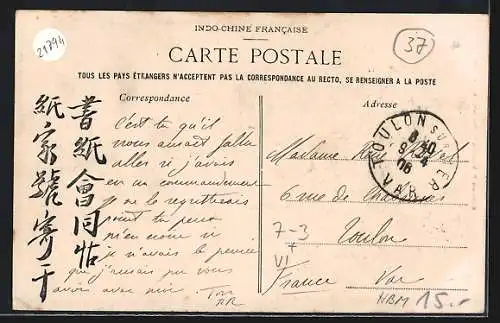 21794
INDO-CHINE FRANÇAISE
37
CARTE POSTALE
TOUS LES PAYS ÉTRANGERS N'ACCEPTENT PAS LA CORRESPONDANCE AU RECTO, SE RENSEIGNER A LA POSTE
Correspondance
書紙會同帖
紙家號寄一千
C'est là qu'il
nous aurait fallu
aller si j'avais
eu un commandement
je ne regretterais
point ta peur
si
je n'avais la pensée
que j'aurais pu vous
avoir avec moi
Adresse
Madame
6 rue de
Toulon
Var
France
TOULON SUR MER
8 40
9 - 4
06
VAR
7-3
VI
NBM 15.-